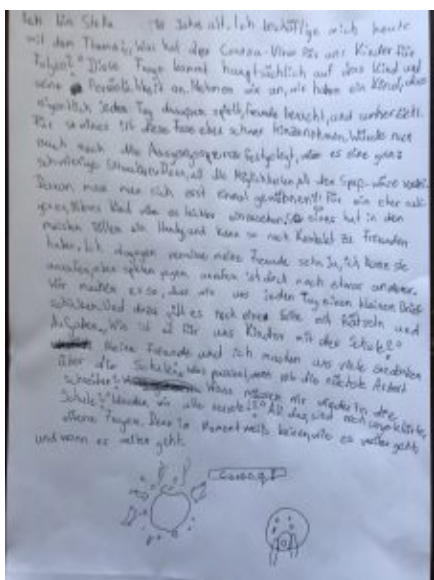 Ich bin Stella 10 Jahre alt. Ich beschäftige mich heute
mit dem Thema: „Was hat der Corona-Virus für uns Kinder für
Folgen?“ Diese Frage kommt hauptsächlich auf das Kind und
seine Persönlichkeit an. Nehmen wir an, wir haben ein Kind, dass
eigentlich jeden Tag draussen spielt, Freunde besucht, und
Für so eines ist diese Phase eher schwer hinzunehmen. Würde nun
auch noch die Ausgangssperre festgelegt, wäre es eine ganz
schwierige Situation. Denn, all die Möglichkeiten, all der Spaß wäre
Daran muss man sich erst einmal gewöhnen!! Für ein eher
Kind wäre es leichter so eines hat in den
meisten Fällen ein Handy und kann so noch Kontakt zu Freunden
haben. Ich dagegen vermisse meine Freunde sehr. Ja, ich kann sie
anrufen, aber spielen gegen anrufen ist doch noch etwas anderes.
Wir machen es so, dass wir uns jeden Tag einen kleinen Brief
schicken. Und dazu gibt es noch eine Seite mit Rätseln und
Aufgaben. Wie ist es für uns Kinder mit der Schule?
Meine Freunde und ich machen uns viele Gedanken
über die Schule. Was passiert, wenn wir die nächste Arbeit
schreiben? Wann müssen wir wieder in die
Schule? Werden wir alle versetzt? All das sind noch ungeklärte,
offene Fragen. Denn im Moment weiß keiner, wie es weiter geht
und wann es weiter geht.
Corona!